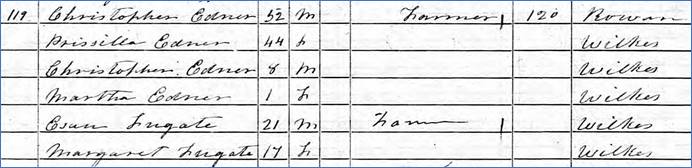 119 Christopher Edner 52 M Farmer 120 Rowan
Prissilla Edner 44 F Wilkes
Christopher Edner 8 M Wilkes
Martha Edner 1 F Wilkes
Esau Fugate 21 M Farm Wilkes
Margaret Fugate 17 F Wilkes